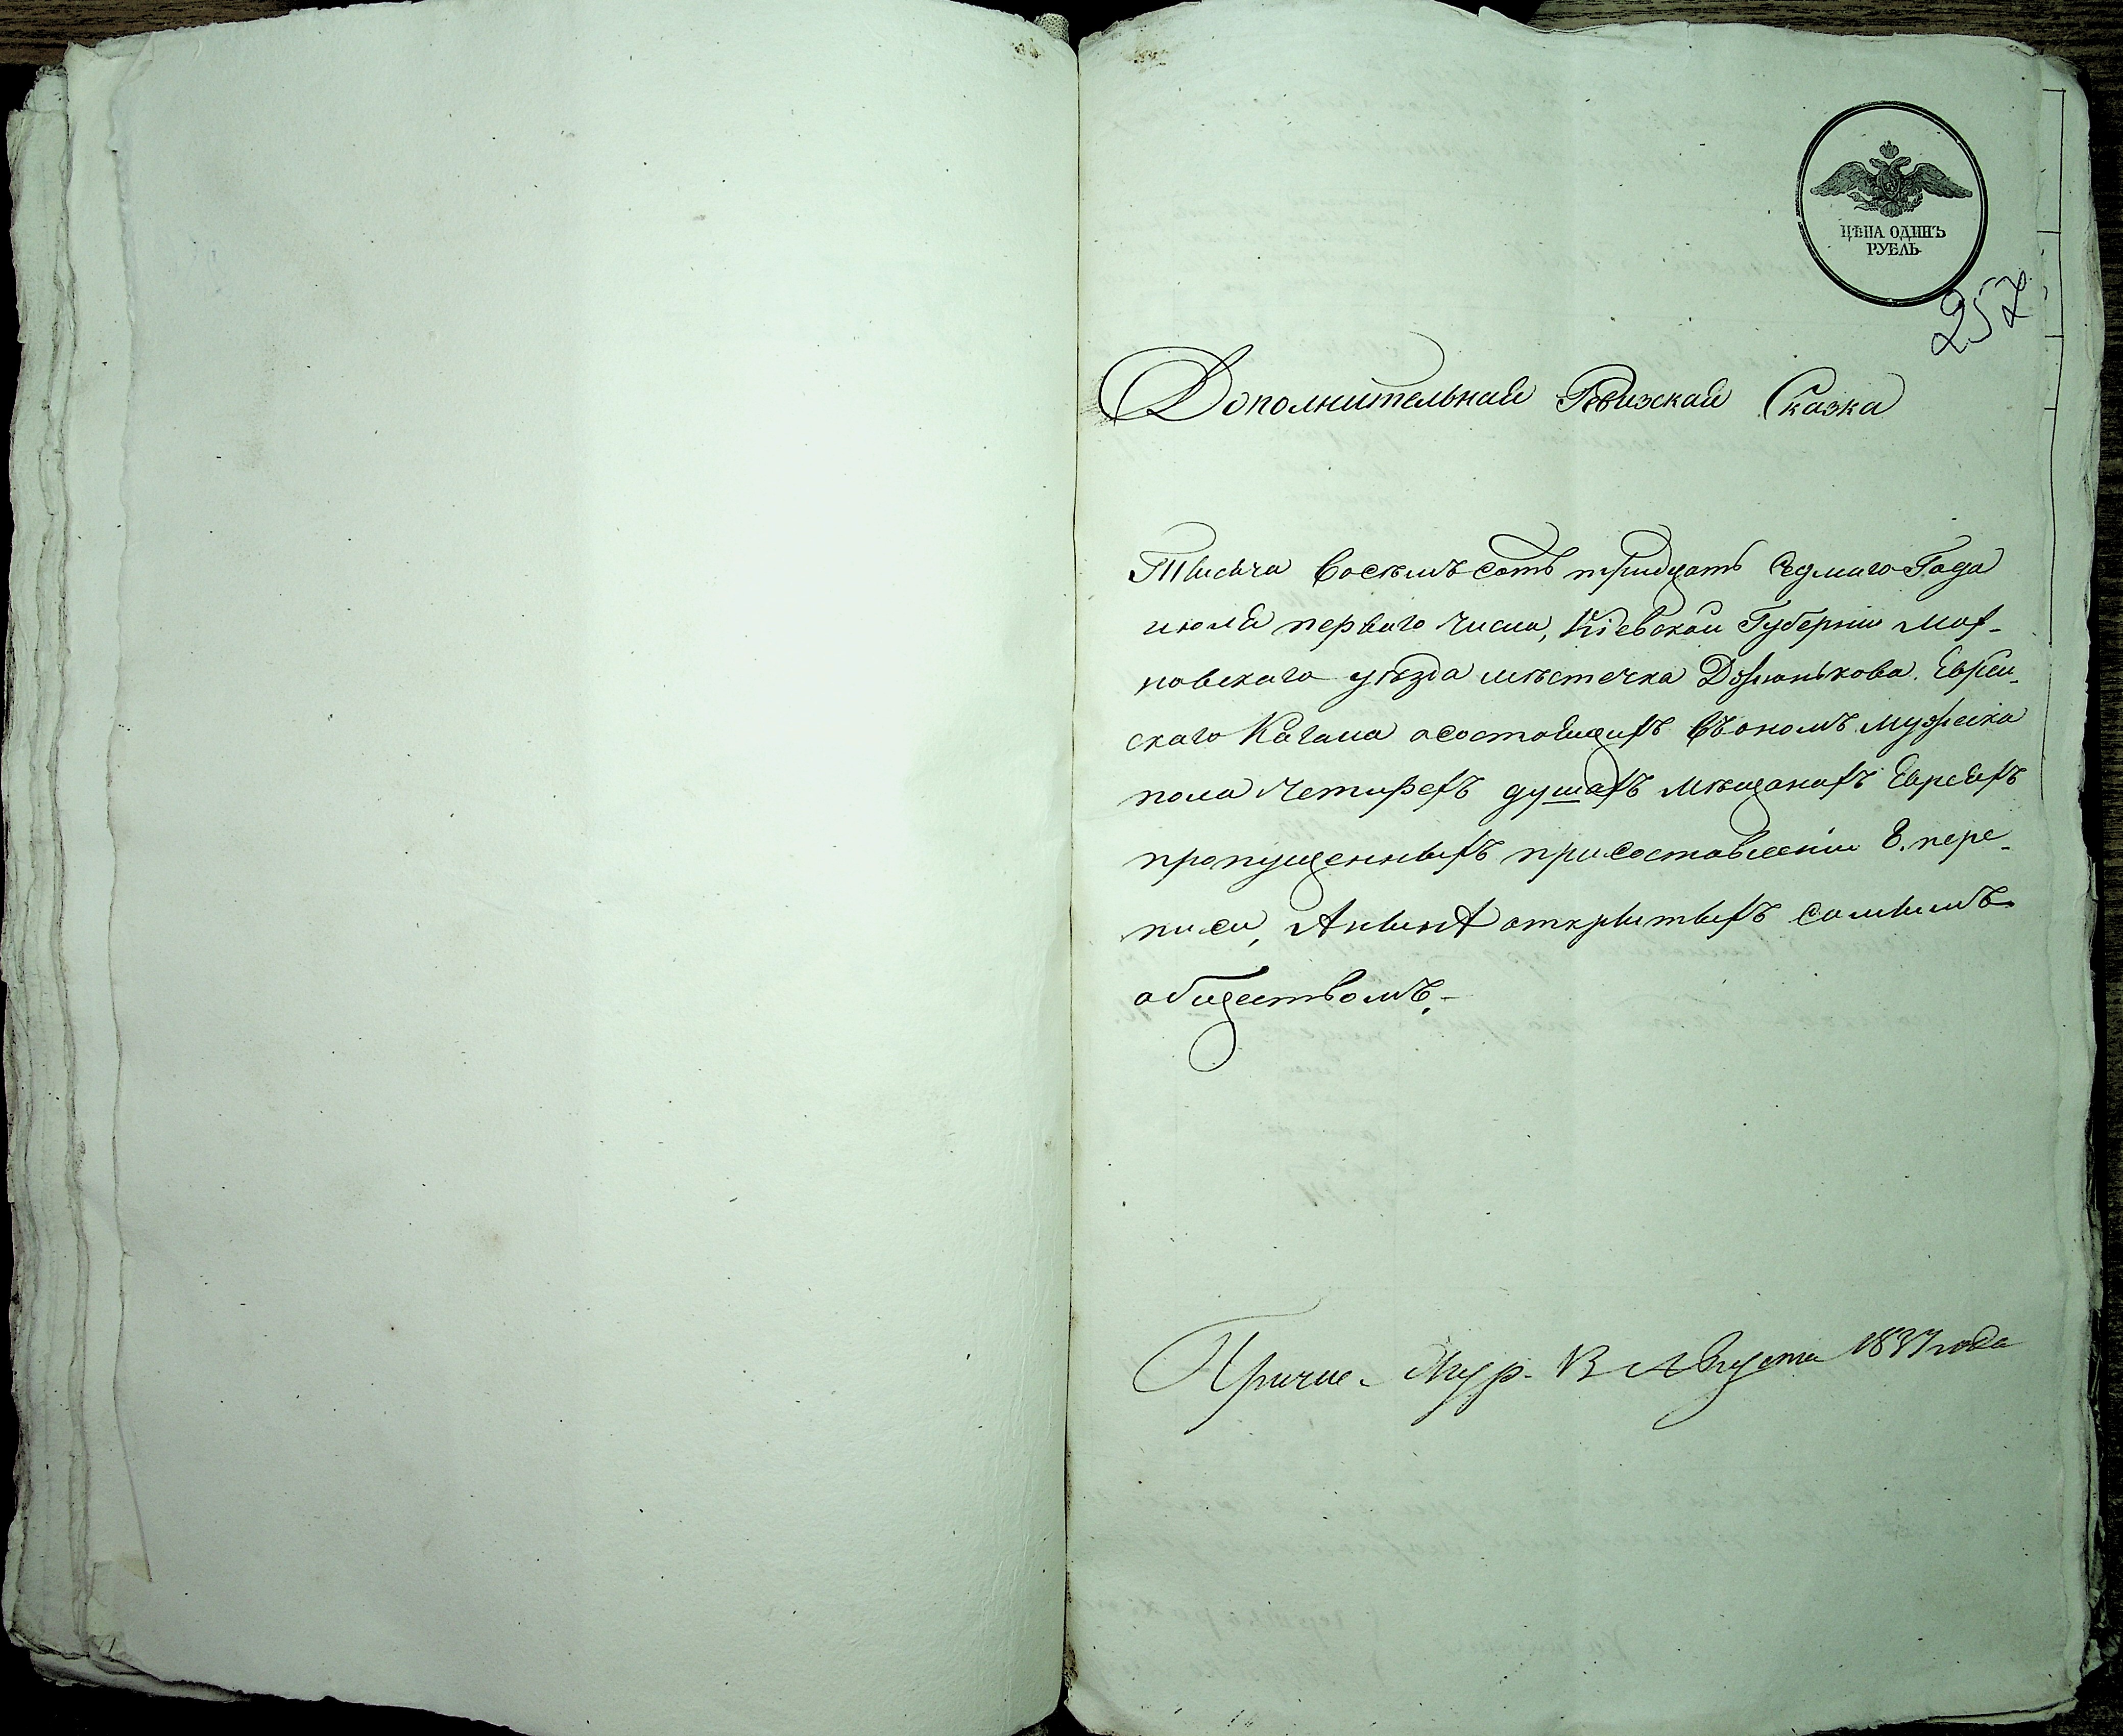 ЦѢНА ОДИНЪ
РУБЛЬ
257
Дополнительная Ревизская Сказка
Тисяча восемъ сотъ тридцать седмаго Года
июля первого числа, Кіевской Губерніи Мах-
новского уѣзда мѣстечка Дзюнькова. Еврей-
ского Кагала осостоящихъ въ ономъ мужеска
пола четирехъ душахъ мѣщанахъ Евреяхъ
пропущенныхъ присоставленіи 8. пере-
писи, Анынѣ открытыхъ самымъ
обществомъ.-
августа 1837 года